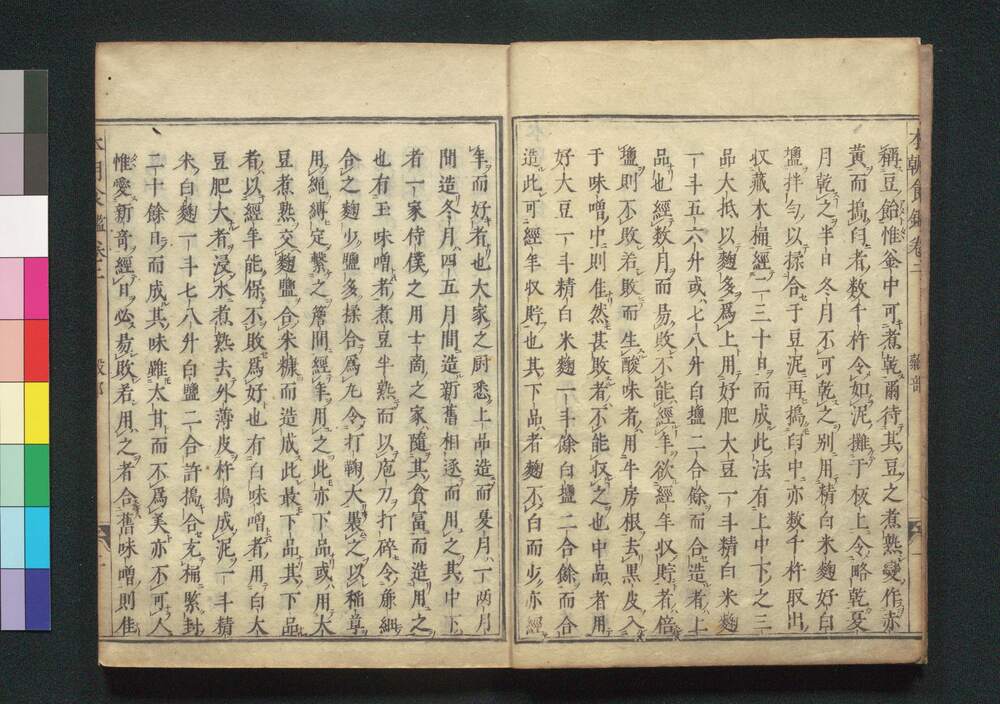 本朝食鑑卷二
穀部
稱豆飴惟釜中可煮乾爾待其豆之煮熟變作赤
黄而搗臼者数千杵令如泥攤于板上令略乾夏
月乾之半日冬月不可乾之别用精白米麹好白
鹽拌勻以揉合于豆泥再搗臼中亦数千杵取出
収藏木桶經二三十日而成此法有上中下之三
品大抵以麹多爲上用好肥大豆一斗精白米麹
一斗五六升或七八升白鹽二合餘而合造者上
品也經数月而易敗不能經年欲經年収貯者倍
鹽則不敗若敗而生酸味者用牛房根去黒皮入
于味噌中則佳然甚敗者不能収之也中品者用
好大豆一斗精白米麹一斗餘白鹽二合餘而合
造此可經年収貯也其下品者麹不白而少亦經
年而好者也大家之厨悉上品造而夏月一兩月
間造冬月四五月間造新舊相逐而用之其中下
者一家侍僕之用士商之家隨其貧富而造用之
也有玉味噌者煮豆半熟而以庖刀打碎令麁細
合之麹少鹽多揉合爲丸令打鞠大裹之以稲草
用繩縛定繫之簷間經年用之此亦下品或用大
豆煮熟交麹鹽合米糠而造成此最下品其下品
者以經年能保不敗爲好也有白味噌者用白大
豆肥大者浸水煮熟去外薄皮杵搗成泥一斗精
米白麹一斗七八升白鹽二合許搗合充桶緊封
二十餘日而成其味雖大甘而不爲美亦不可人
惟愛新奇經日必易敗若用之者合舊味噌則佳
本朝食鑑卷二
穀部